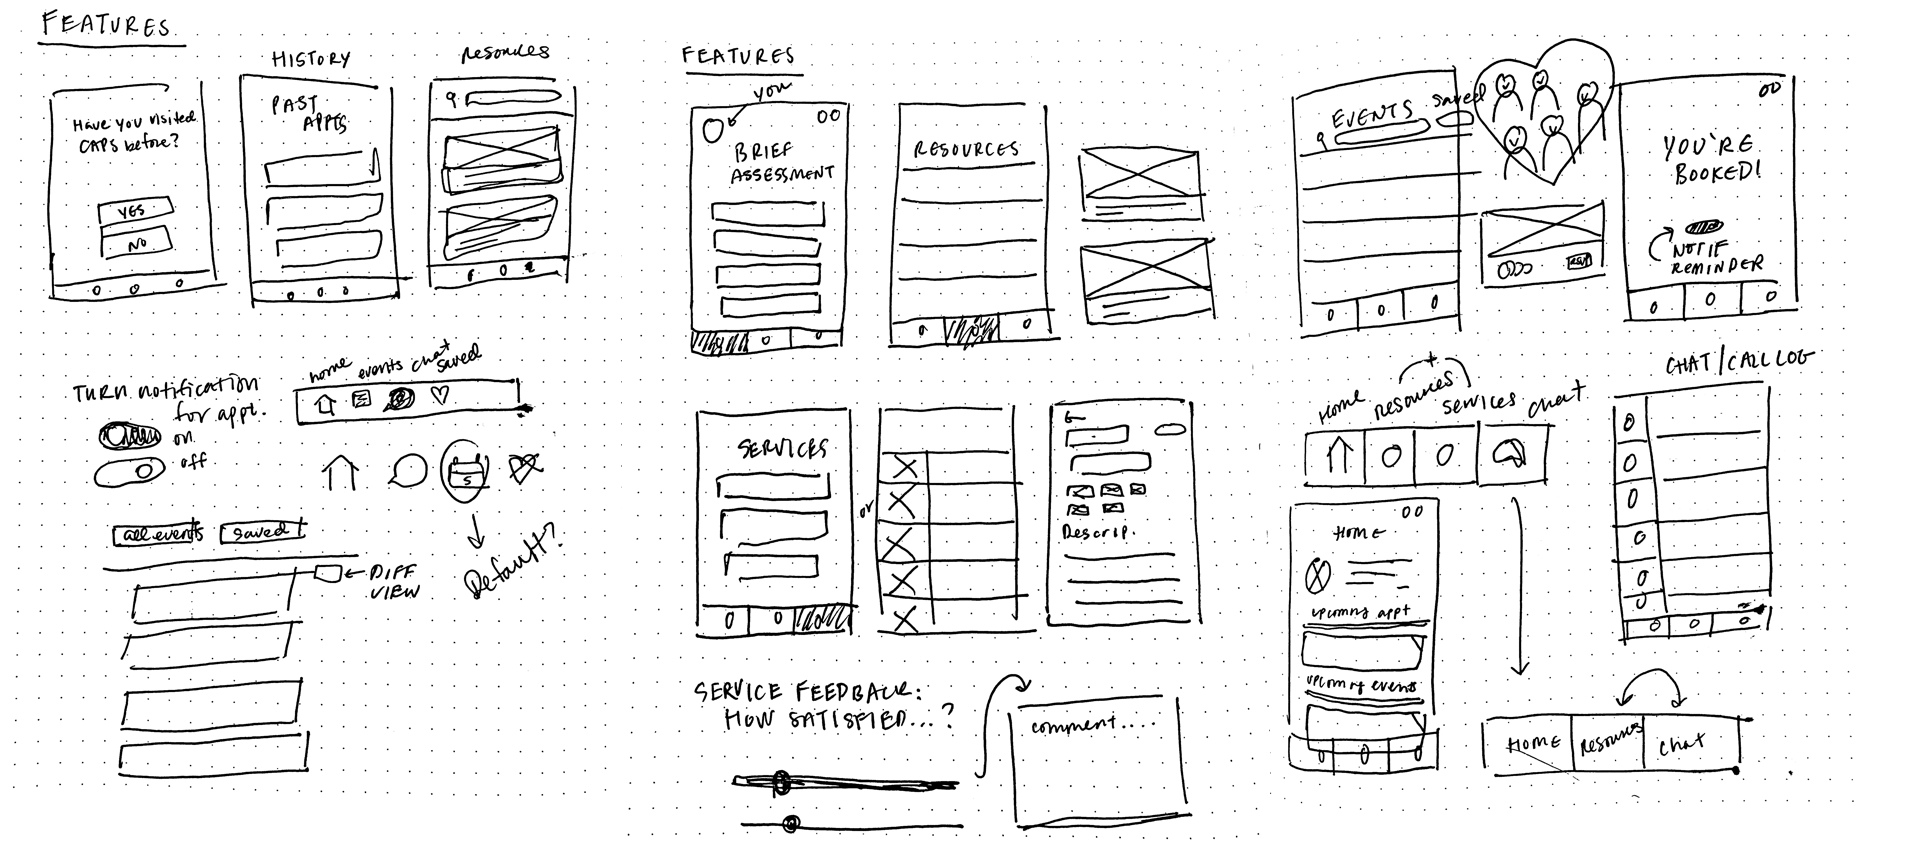 FEATURES
Have you visited
CAPS before?
YES
NO
HISTORY
PAST
APPTS
Resources
TURN notification
for appt.
on
off
home
events
chat
saved
Default?
all events
saved
DIFF
VIEW
FEATURES
you
BRIEF
ASSESSMENT
RESOURCES
SERVICES
or
Descrip.
SERVICE FEEDBACK:
HOW SATISFIED...?
comment....
EVENTS
saved
RSVP
YOU'RE
BOOKED!
NOTIF
REMINDER
Home
resources
+
services
chat
CHAT/CALL LOG
HOME
upcoming appt
upcoming events
HOME
Resources
chat